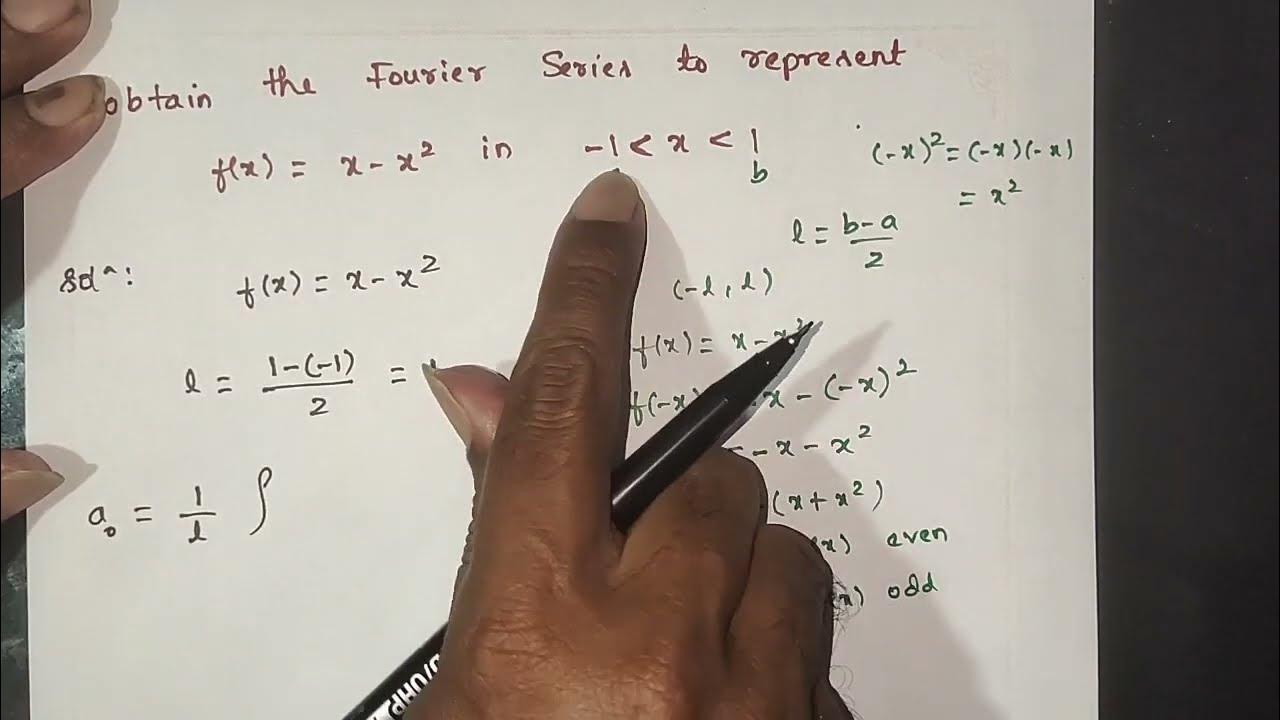 obtain the Fourier Series to represent
f(x) = x - x² in -1 < x < 1
b
(-x)² = (-x)(-x)
= x²
l = b-a/2
Solⁿ: f(x) = x - x²
(-l, l)
f(x) = x - x²
l = 1-(-1)/2 =
f(-x) x - (-x)²
- x - x²
a₀ = 1/l ∫
(x + x²)
(x) even
(x) odd